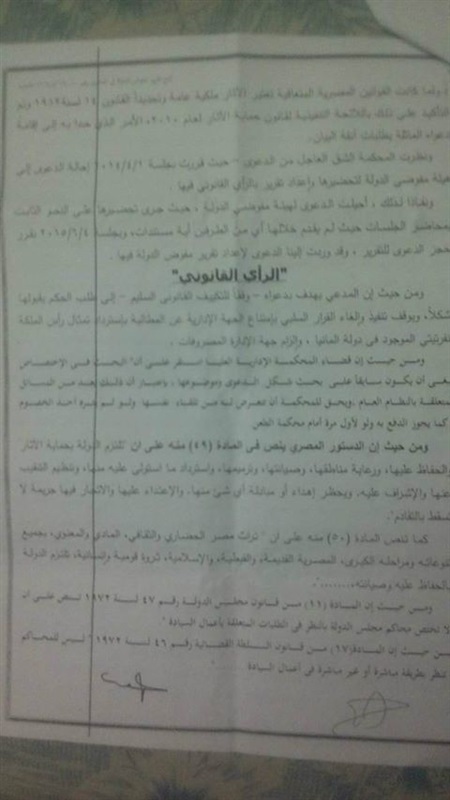 ولما كانت القوانين المصرية المتعاقبة تعتبر الآثار ملكية عامة وتحديداً القانون ١٤ لسنة ١٩١٢ وتم
التأكيد على ذلك باللائحة التنفيذية لقانون حماية الآثار لعام ٢٠١٠، الأمر الذي حدا به إلى إقامة
دعواه الماثلة بطلبات آنفة البيان.
ونظرت المحكمة الشق العاجل من الدعوى – حيث قررت بجلسة إحالة الدعوى إلى
هيئة مفوضي الدولة لتحضيرها وإعداد تقرير بالرأي القانوني فيها .
ونفاذاً لذلك ، أحيلت الدعوى لهيئة مفوضي الدولة ، حيث جرى تحضيرها على النحو الثابت
بمحاضر الجلسات حيث لم يقدم خلالها أي من الطرفين أية مستندات، وبجلسة ٢٠١٥/٦/٤ تقرر
حجز الدعوى للتقرير ، وقد وردت إلينا الدعوى لإعداد تقرير مفوض الدولة فيها .
"الرأى القانوني"
ومن حيث إن المدعي يهدف بدعواه – وفقاً للتكييف القانوني السليم – إلى طلب الحكم بقبولها
شكلاً، وبوقف تنفيذ وإلغاء القرار السلبي بإمتناع الجهة الإدارية عن المطالبة بإسترداد تمثال رأس الملكة
نفرتيتي الموجود في دولة المانيا ، وإلزام جهة الإدارة المصروفات .
ومن حيث إن قضاء المحكمة الإدارية العليا استقر على أن" البحث في الإختصاص
ينبغي أن يكون سابقاً على بحث شكل الدعوى وموضوعها ، باعتبار أن ذلك يعد من المسائل
متعلقة بالنظام العام ، ويحق للمحكمة أن تتعرض له من تلقاء نفسها ولو لم يثره أحد الخصوم
كما يجوز الدفع به ولو لأول مرة أمام محكمة الطعن
ومن حيث إن الدستور المصري ينص فى المادة (٤٩) منه على أن "تلتزم الدولة بحماية الآثار
والحفاظ عليها، ورعاية مناطقها، وصيانتها، وترميمها، واسترداد ما استولى عليه منها، وتنظيم التنقيب
عنها والإشراف عليه. ويحظر إهداء أو مبادلة أي شئ منها. والإعتداء عليها والاتجار فيها جريمة لا
تسقط بالتقادم".
كما تنص المادة (٥٠) منه على أن " تراث مصر الحضاري والثقافي، المادي والمعنوي، بجميع
تنوعاته ومراحله الكبرى، المصرية القديمة، والقبطية، والإسلامية، ثروة قومية وإنسانية، تلتزم الدولة
بالحفاظ عليه وصيانته،.......".
ومن حيث إن المادة (١١) من قانون مجلس الدولة رقم ٤٧ لسنة ١٩٧٢ تنص على أن
" لا تختص محاكم مجلس الدولة بالنظر في الطلبات المتعلقة بأعمال السيادة "
ومن حيث إن المادة (١٧) من قانون السلطة القضائية رقم ٤٦ لسنة ١٩٧٢ " ليس للمحاكم
أن تنظر بطريقة مباشرة أو غير مباشرة فى أعمال السيادة "